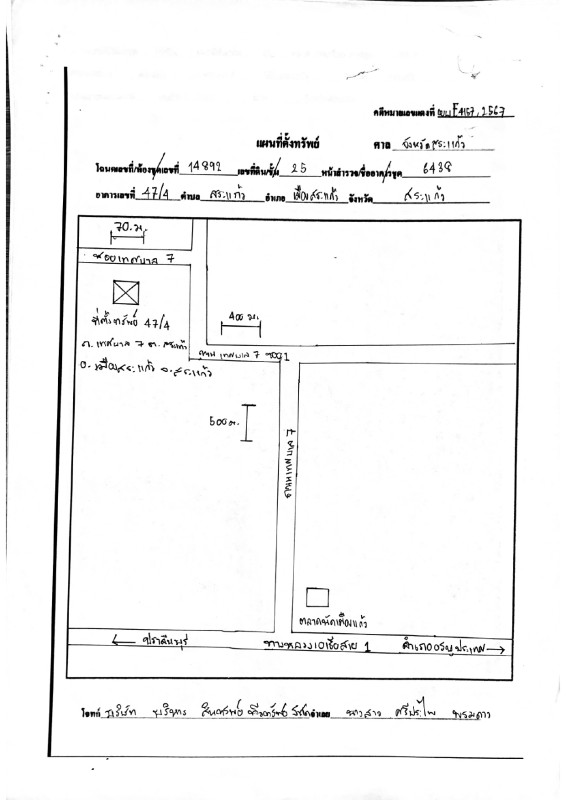 คดีหมายเลขแดงที่ ผบE4157/2567
แผนที่ตั้งทรัพย์ ศาล จังหวัดสระแก้ว
โฉนดเลขที่/ห้องชุดเลขที่ 14892 เลขที่ดิน/ชั้น 25 หน้าสำรวจ/ชื่ออาคารชุด 6438
อาคารเลขที่ 47/4 ตำบล สระแก้ว อำเภอ เมืองสระแก้ว จังหวัด สระแก้ว
70 ม.
ซอยเทศบาล 7
400 ม.
ที่ตั้งทรัพย์ 47/4
ถ. เทศบาล 7 ต. สระแก้ว
ถนน เทศบาล 7 ซอย1
อ. เมืองสระแก้ว จ. สระแก้ว
500 ม.
ถนนเทศบาล 7
ตลาดนัดเมืองแก้ว
ปราจีนบุรี ทางหลวงเอเชียสาย 1 อำเภออรัญประเทศ
โจทก์ บริษัท บริหาร สินทรัพย์ จำเลย นางสาว ศรีประไพ พรมดาว